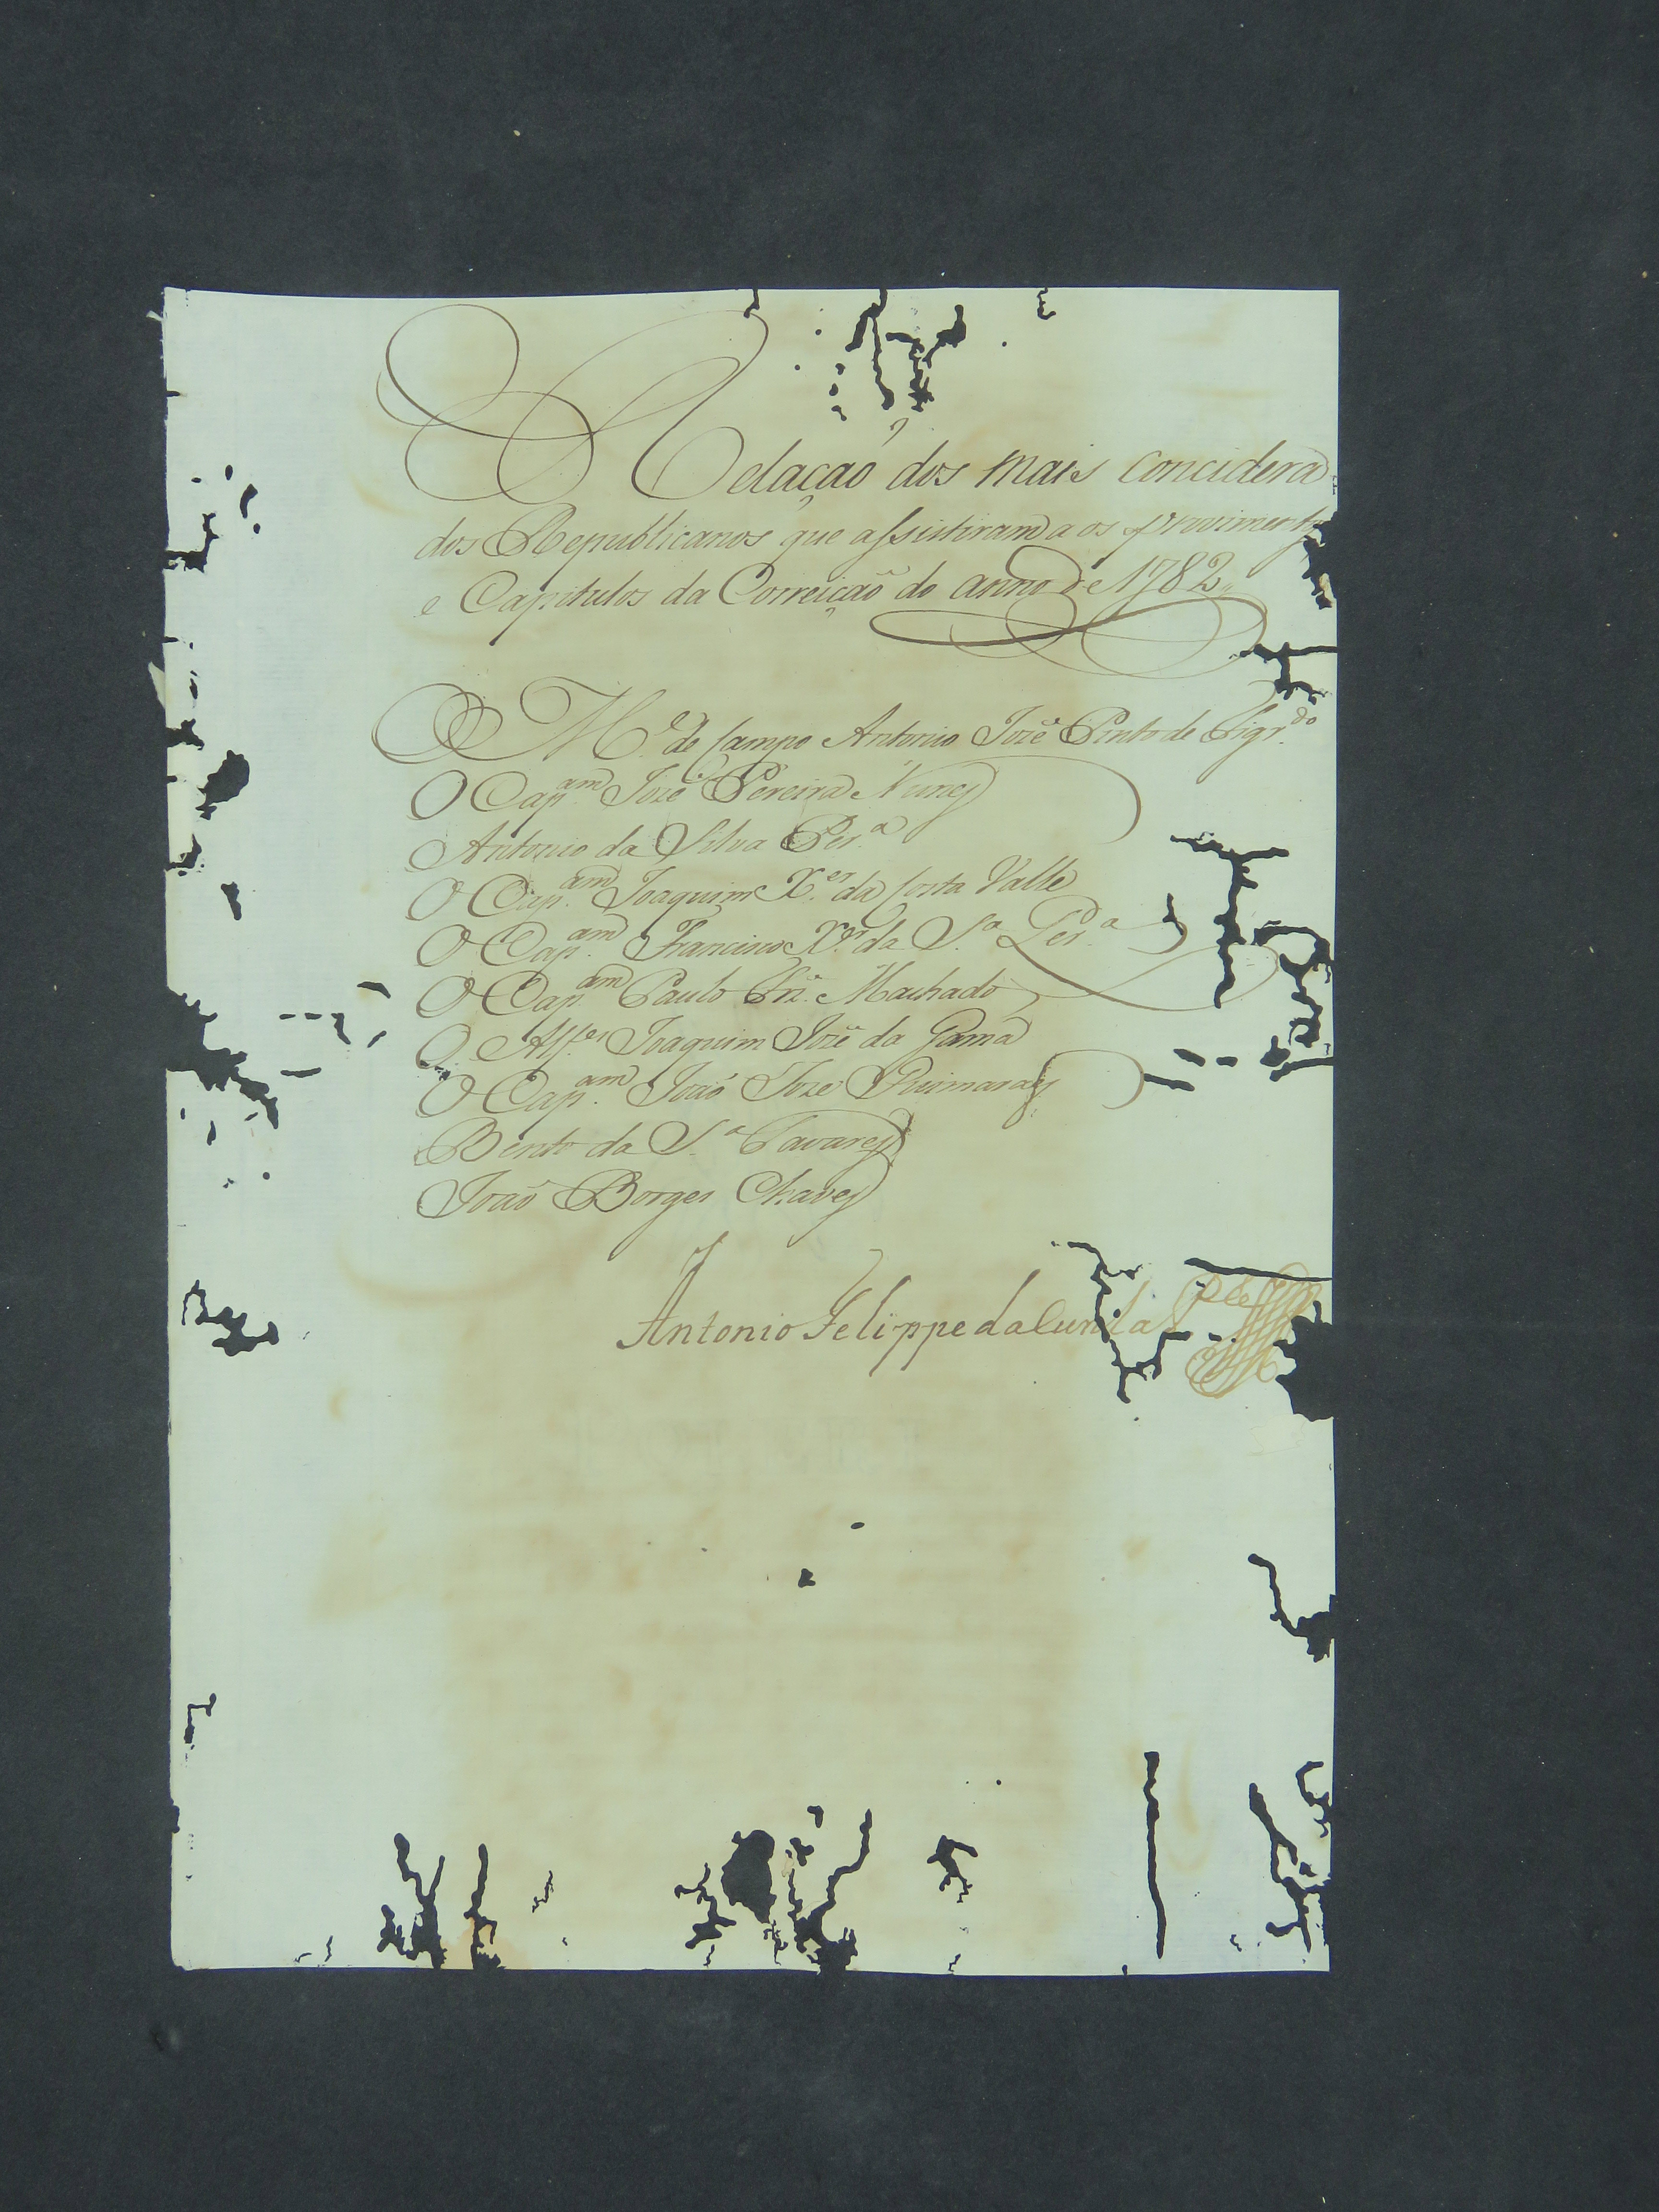 Relação dos mais concidera
dos Republicanos que assistiram a os proviment
e Capitulos da Correição do anno de 1782
O M.e de Campo Antonio Jozê Pinto de Figr.do
O Cap.am Jozê Pereira Nunes
Antonio da Silva Per.a
O Cap.am Joaquim X.er da Costa Valle
O Cap.am Francisco X.er da S.a Per.a
O Cap.am Paulo Machado
O Alf.es Joaquim Jozê da Gama
O Cap.am João Joze Guimaraes
Bento da S.a Tavares
João Borges Chaves
Antonio Felippe da Cunha